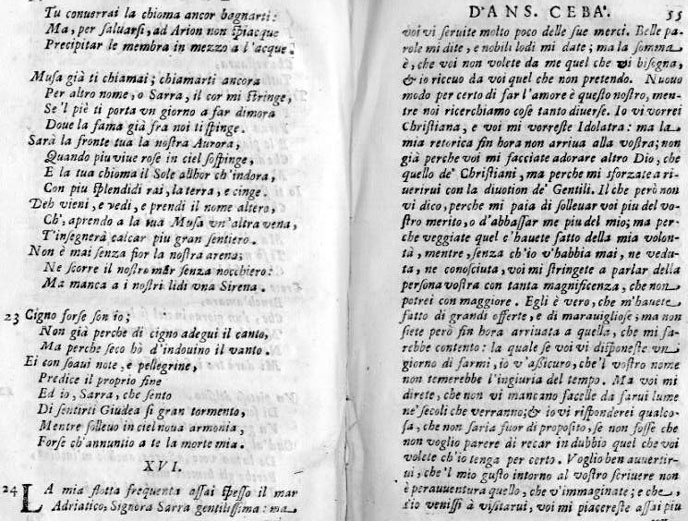 Tu conuerrai la chioma ancor bagnarti:
Ma, per saluarsi, ad Arion non spiacque
Precipitar le membra in mezzo a l'acque.
Musa già ti chiamai; chiamarti ancora
Per altro nome, o Sarra, il cor mi stringe,
Se'l piè ti porta vn giorno a far dimora
Doue la fama già fra noi ti spinge.
Sarà la fronte tua la nostra Aurora,
Quando piu viue rose in ciel sospinge,
E la tua chioma il Sole allhor ch'indora,
Con piu splendidi rai, la terra, e cinge.
Deh vieni, e vedi, e prendi il nome altero,
Ch', aprendo a la tua Musa vn'altra vena,
T'insegnerà calcar piu gran sentiero.
Non è mai senza fior la nostra arena;
Ne scorre il nostro mar senza nocchiero:
Ma manca a i nostri lidi vna Sirena.
23 Cigno forse son io;
Non già perche di cigno adegui il canto,
Ma perche seco hò d'indouino il vanto.
Ei con soaui note, e pellegrine,
Predice il proprio fine
Ed io, Sarra, che sento
Di sentirti Giudea sì gran tormento,
Mentre solleuo in ciel noua armonia,
Forse ch'annuntio a te la morte mia.
XVI.
24 LA mia flotta frequenta assai spesso il mar
Adriatico, Signora Sarra gentilissima: ma
D'ANS. CEBA'. 55
voi vi seruite molto poco delle sue merci. Belle pa-
role mi dite, e nobili lodi mi date; ma la somma
è, che voi non volete da me quel che vi bisogna,
& io riceuo da voi quel che non pretendo. Nuouo
modo per certo di far l'amore è questo nostro, men-
tre noi ricerchiamo cose tanto diuerse. Io vi vorrei
Christiana, e voi mi vorreste Idolatra: ma la
mia retorica fin hora non arriua alla vostra; non
già perche voi mi facciate adorare altro Dio, che
quello de' Christiani, ma perche mi sforzate a ri-
uerirui con la diuotion de' Gentili. Il che però non
vi dico, perche mi paia di solleuar voi piu del vo-
stro merito, o d'abbassar me piu del mio; ma per-
che veggiate quel c'hauete fatto della mia volon-
tà, mentre, senza ch'io v'habbia mai, ne vedu-
ta, ne conosciuta, voi mi stringete a parlar della
persona vostra con tanta magnificenza, che non
potrei con maggiore. Egli è vero, che m'hauete
fatto di grandi offerte, e di marauigliose; ma non
siete però fin hora arriuata a quella, che mi fa-
rebbe contento: la quale se voi vi disponeste vn
giorno di farmi, io v'assicuro, che'l vostro nome
non temerebbe l'ingiuria del tempo. Ma voi mi
direte, che non vi mancano facelle da farui lume
ne' secoli che verranno; & io vi risponderei qualco-
sa, che non saria fuor di proposito, se non fosse che
non voglio parere di recar in dubbio quel che voi
volete ch'io tenga per certo. Voglio ben auuertir-
ui, che'l mio gusto intorno al vostro scriuere non
è perauuentura quello, che v'immaginate; e che,
s'io venissi à visitarui, voi mi piacereste assai piu